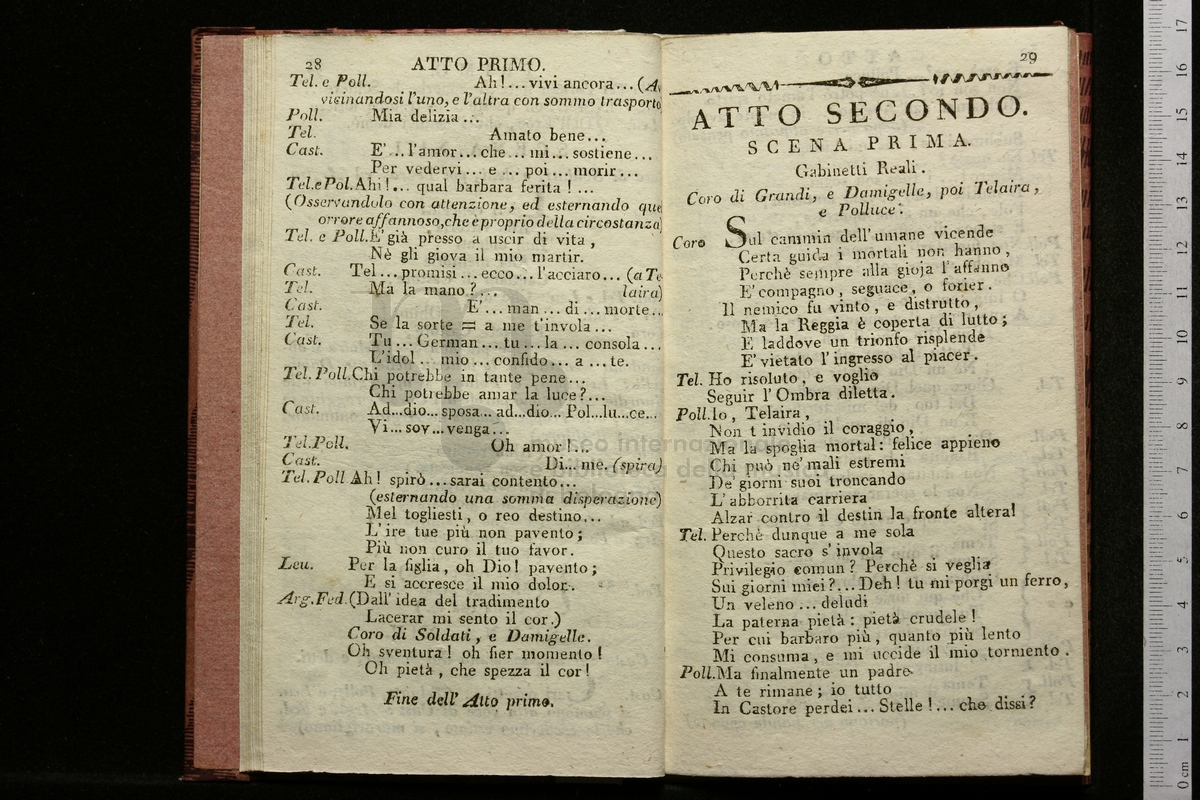 28
ATTO PRIMO.
Tel. e Poll. Ah!... vivi ancora... (A
vicinandosi l'uno, e l'altra con sommo trasporto
Poll. Mia delizia...
Tel. Amato bene...
Cast. E'... l'amor... che... mi... sostiene...
Per vedervi... e... poi... morir...
Tel.e Pol. Ahi!... qual barbara ferita!...
(Osservandolo con attenzione, ed esternando que
orrore affannoso, che è proprio della circostanza)
Tel. e Poll. E' già presso a uscir di vita,
Nè gli giova il mio martir.
Cast. Tel... promisi... ecco... l'acciaro... (a Te
Tel. Ma la mano?... laira)
Cast. E'... man... di... morte...
Tel. Se la sorte = a me t'invola...
Cast. Tu... German... tu... la... consola...
L'idol... mio... confido... a... te.
Tel. Poll. Chi potrebbe in tante pene...
Chi potrebbe amar la luce?...
Cast. Ad...dio... sposa... ad...dio... Pol...lu...ce...
Vi... sov... venga...
Tel. Poll. Oh amor!...
Cast. Di... me. (spira)
Tel. Poll. Ah! spirò... sarai contento...
(esternando una somma disperazione)
Mel togliesti, o reo destino...
L'ire tue più non pavento;
Più non curo il tuo favor.
Leu. Per la figlia, oh Dio! pavento;
E si accresce il mio dolor.
Arg. Fed. (Dall'idea del tradimento
Lacerar mi sento il cor.)
Coro di Soldati, e Damigelle.
Oh sventura! oh fier momento!
Oh pietà, che spezza il cor!
Fine dell' Atto primo.
29
ATTO SECONDO.
SCENA PRIMA.
Gabinetti Reali.
Coro di Grandi, e Damigelle, poi Telaira,
e Polluce.
Coro Sul cammin dell'umane vicende
Certa guida i mortali non hanno,
Perchè sempre alla gioja l'affanno
E' compagno, seguace, o forier.
Il nemico fu vinto, e distrutto,
Ma la Reggia è coperta di lutto;
E laddove un trionfo risplende
E' vietato l'ingresso al piacer.
Tel. Ho risoluto, e voglio
Seguir l'Ombra diletta.
Poll. Io, Telaira,
Non t invidio il coraggio,
Ma la spoglia mortal: felice appieno
Chi può ne' mali estremi
De' giorni suoi troncando
L'abborrita carriera
Alzar contro il destin la fronte altera!
Tel. Perchè dunque a me sola
Questo sacro s'invola
Privilegio comun? Perchè si veglia
Sui giorni miei?... Deh! tu mi porgi un ferro,
Un veleno... deludi
La paterna pietà: pietà crudele!
Per cui barbaro più, quanto più lento
Mi consuma, e mi uccide il mio tormento.
Poll. Ma finalmente un padre
A te rimane; io tutto
In Castore perdei... Stelle!... che dissi?
museo internazionale
e biblioteca della musica
17
16
15
14
13
12
11
10
9
8
7
6
5
4
3
2
1
0 cm